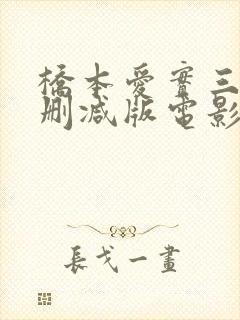 橋本愛實三
刪減版電影
長戈一畫